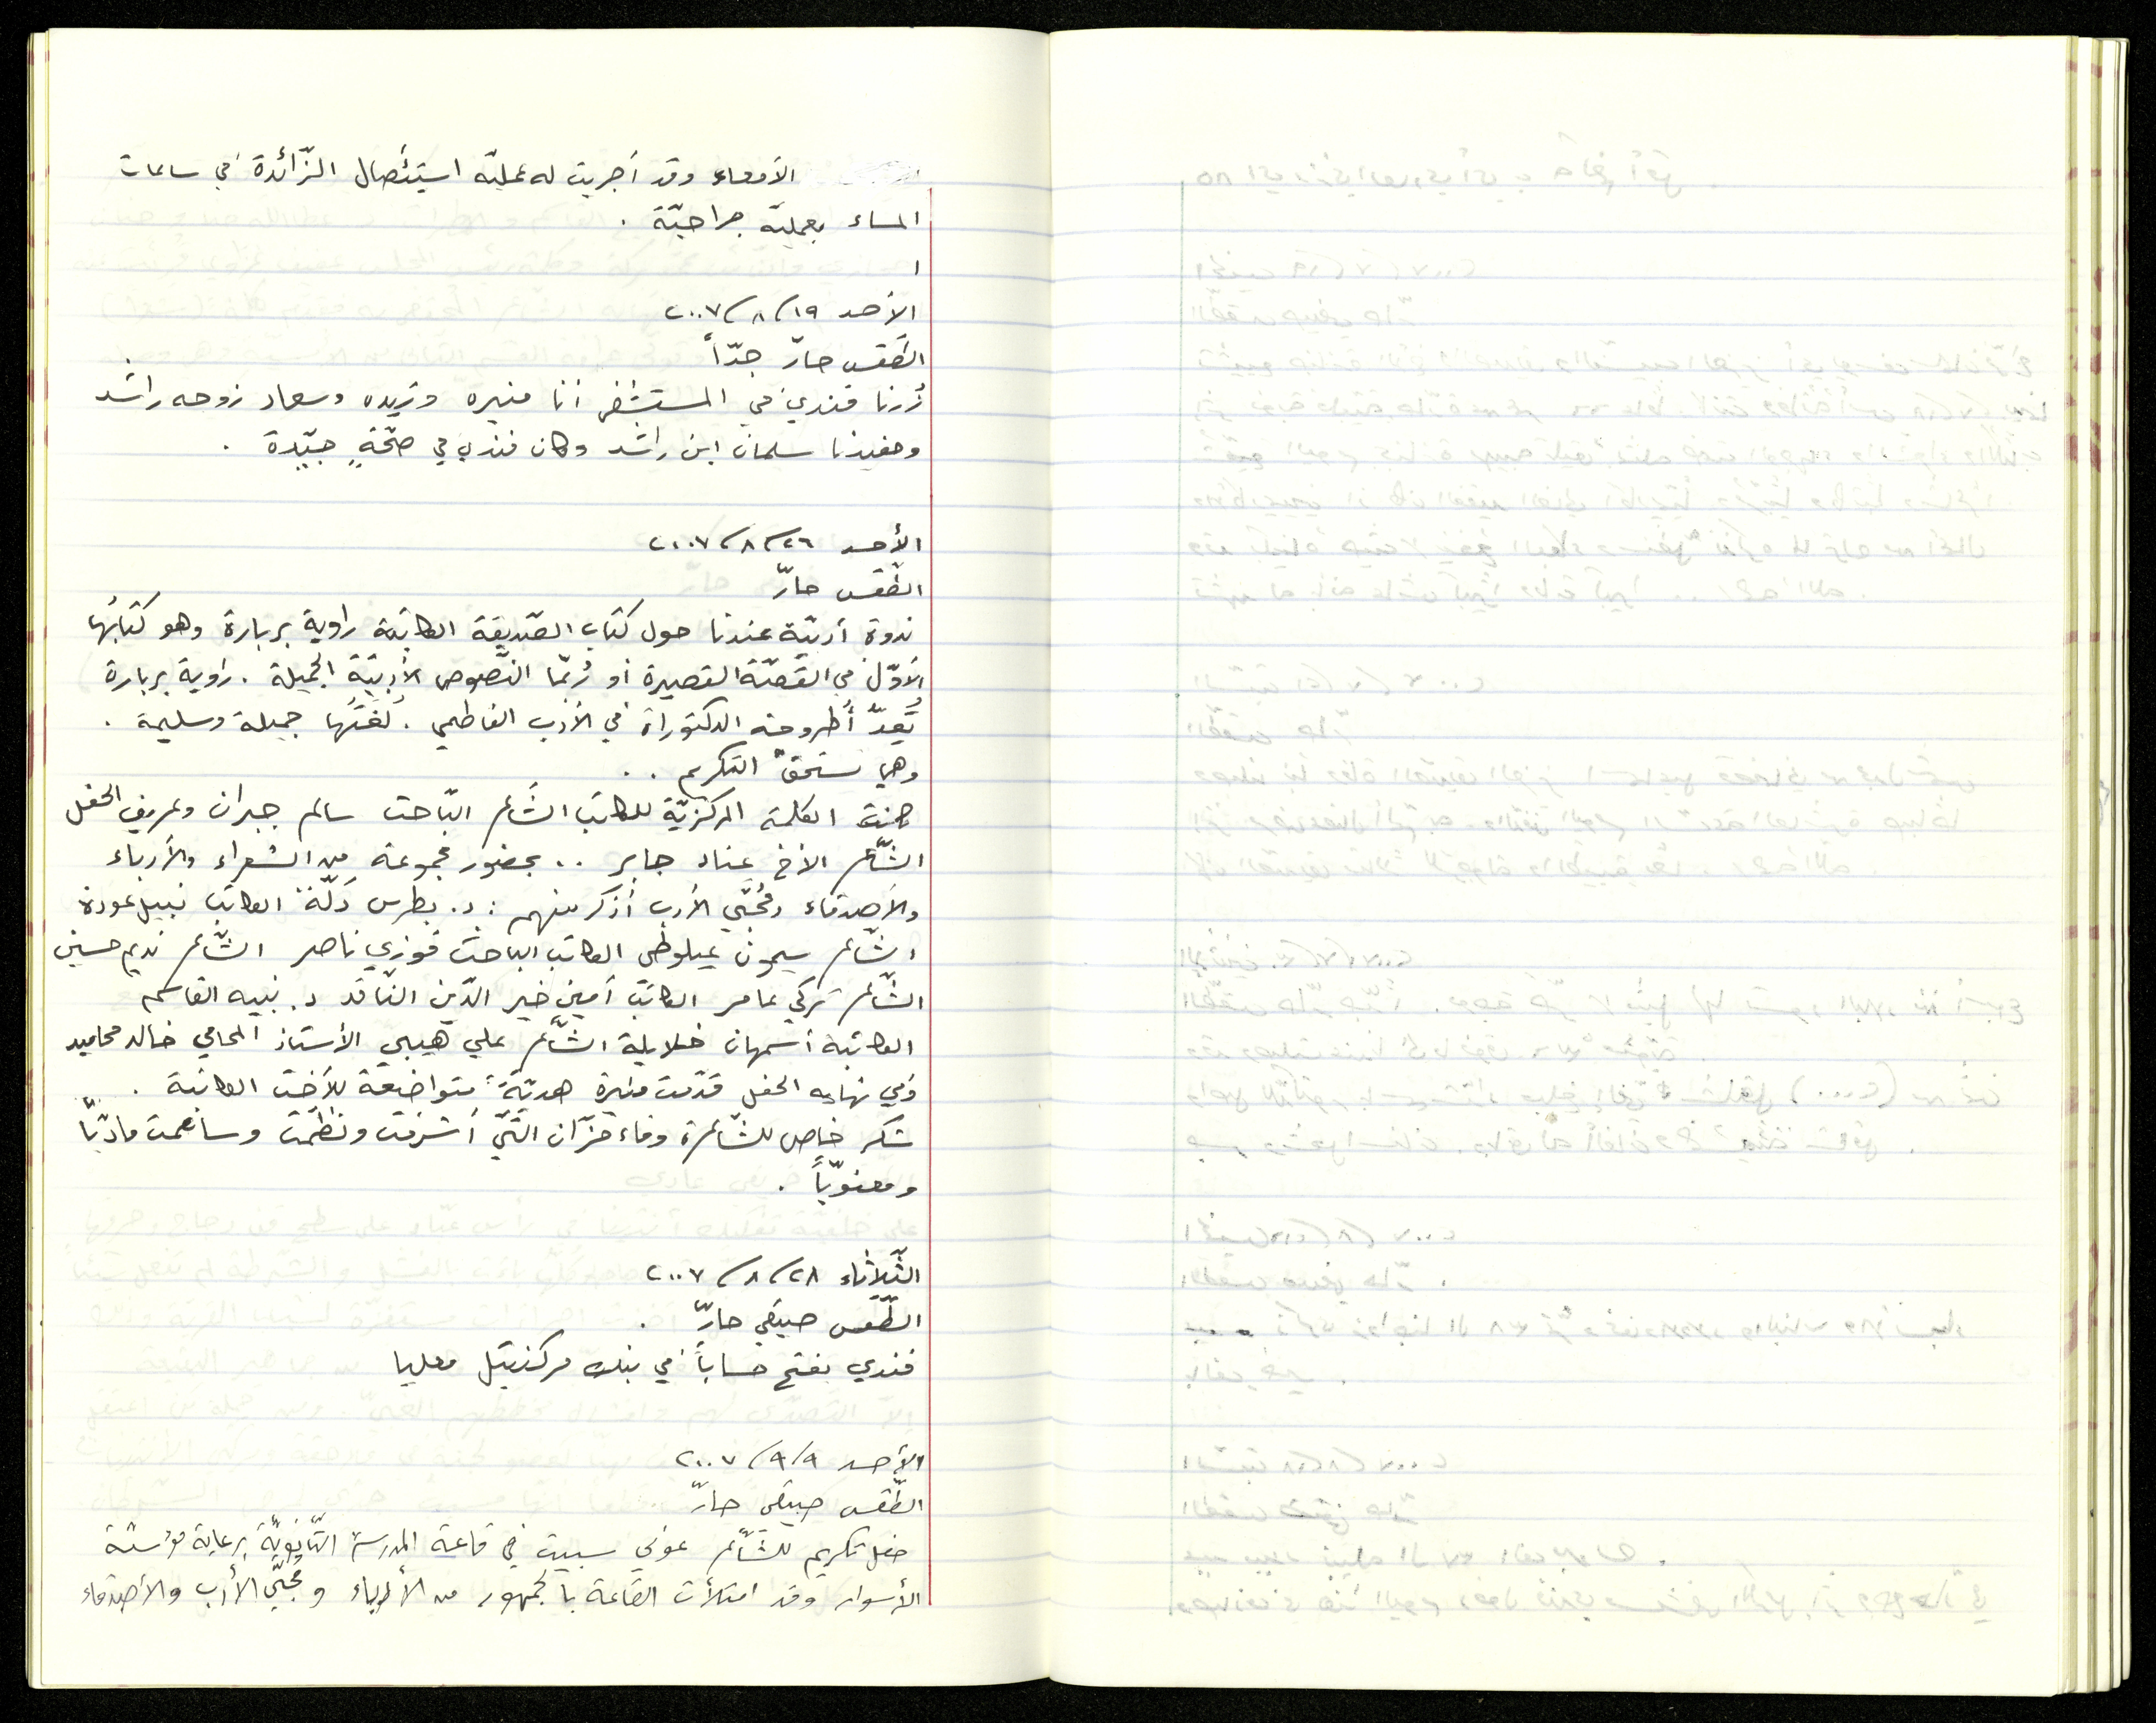 الأمعاء وقد أجريت له عمليّه استِئصال الزّائدة في ساعات
المساء بعمليّه جراحيّة .
ا
الأحد ١٩/٨/٢٠٠٧
الطّقس حارّ جدّاً
زُرنا فندي في المستشفى انا منيره وزيده وسعاد زوجه راشد
وحفيدنا سلمان ابن راشد وكان فندي في صحّةٍ جيّدة .
الأحد ٢٦/٨/٢٠٠٧
الطّقس حارّ
ندوة أدبيّة عندنا حول كتاب الصّديقة الكاتبة راوية بربارة وهو كتابُها
الأوّل في القصّة القصيرة أو رُبّما النّصوص الأدبيّة الجميلة . راوية بربارة
تُعِدّ أُطروحة الدكتوراة في الأدب الفاطمي . لُغَتُها جميلة وسليمة .
وهي تستحقّ التكريم . .
كانت الكلمة المركزيّة للكاتب الشّاعر البّاحث سالم جبران وعريف الحفل
الشّاعر الأخ عناد جابر .. بحضور مجموعة من الشعراء والأدباء
والأصدقاء ومُحبّي الأدب أذكر منهم : د. بطرس دَلّة الكاتب نبيل عودة
الشّاعر سيمون عيلوطي الكاتب الباحث فوزي ناصر الشّاعر نديم حسين
الشّاعر تركي عامر الكاتب أمين خير الدّين النّاقد د. نبيه القاسم
الكاتبة أسمهان خلايلة الشّاعر علي هيبي الأستاذ المحامي خالد محاميد
وفي نهايه الحفل قدّمت منيرة هديّةً متواضعة للأخت الكاتبة .
شكر خاص للشّاعرة وفاء حزّان التّي أشرفت ونظّمت وساهمت مادّيّاً
ومعنويّاً .
الثّلاثاء ٢٨/٨/٢٠٠٧
الطّقس صيفي حارّ .
فندي يفتح حساباً في بنك مركنتيل معليا
الأحد ٩/٩/٢٠٠٧
الطّقس صيفي حارّ
حفل تكريم للشّاعر عوني سبيت في قاعة المدرسة الثّانويّة برعاية مؤسّسة
الأسوار وقد امتلأت القاعة بالجمهور من الأدباء ومُحبّي الأدب والأصدقاء